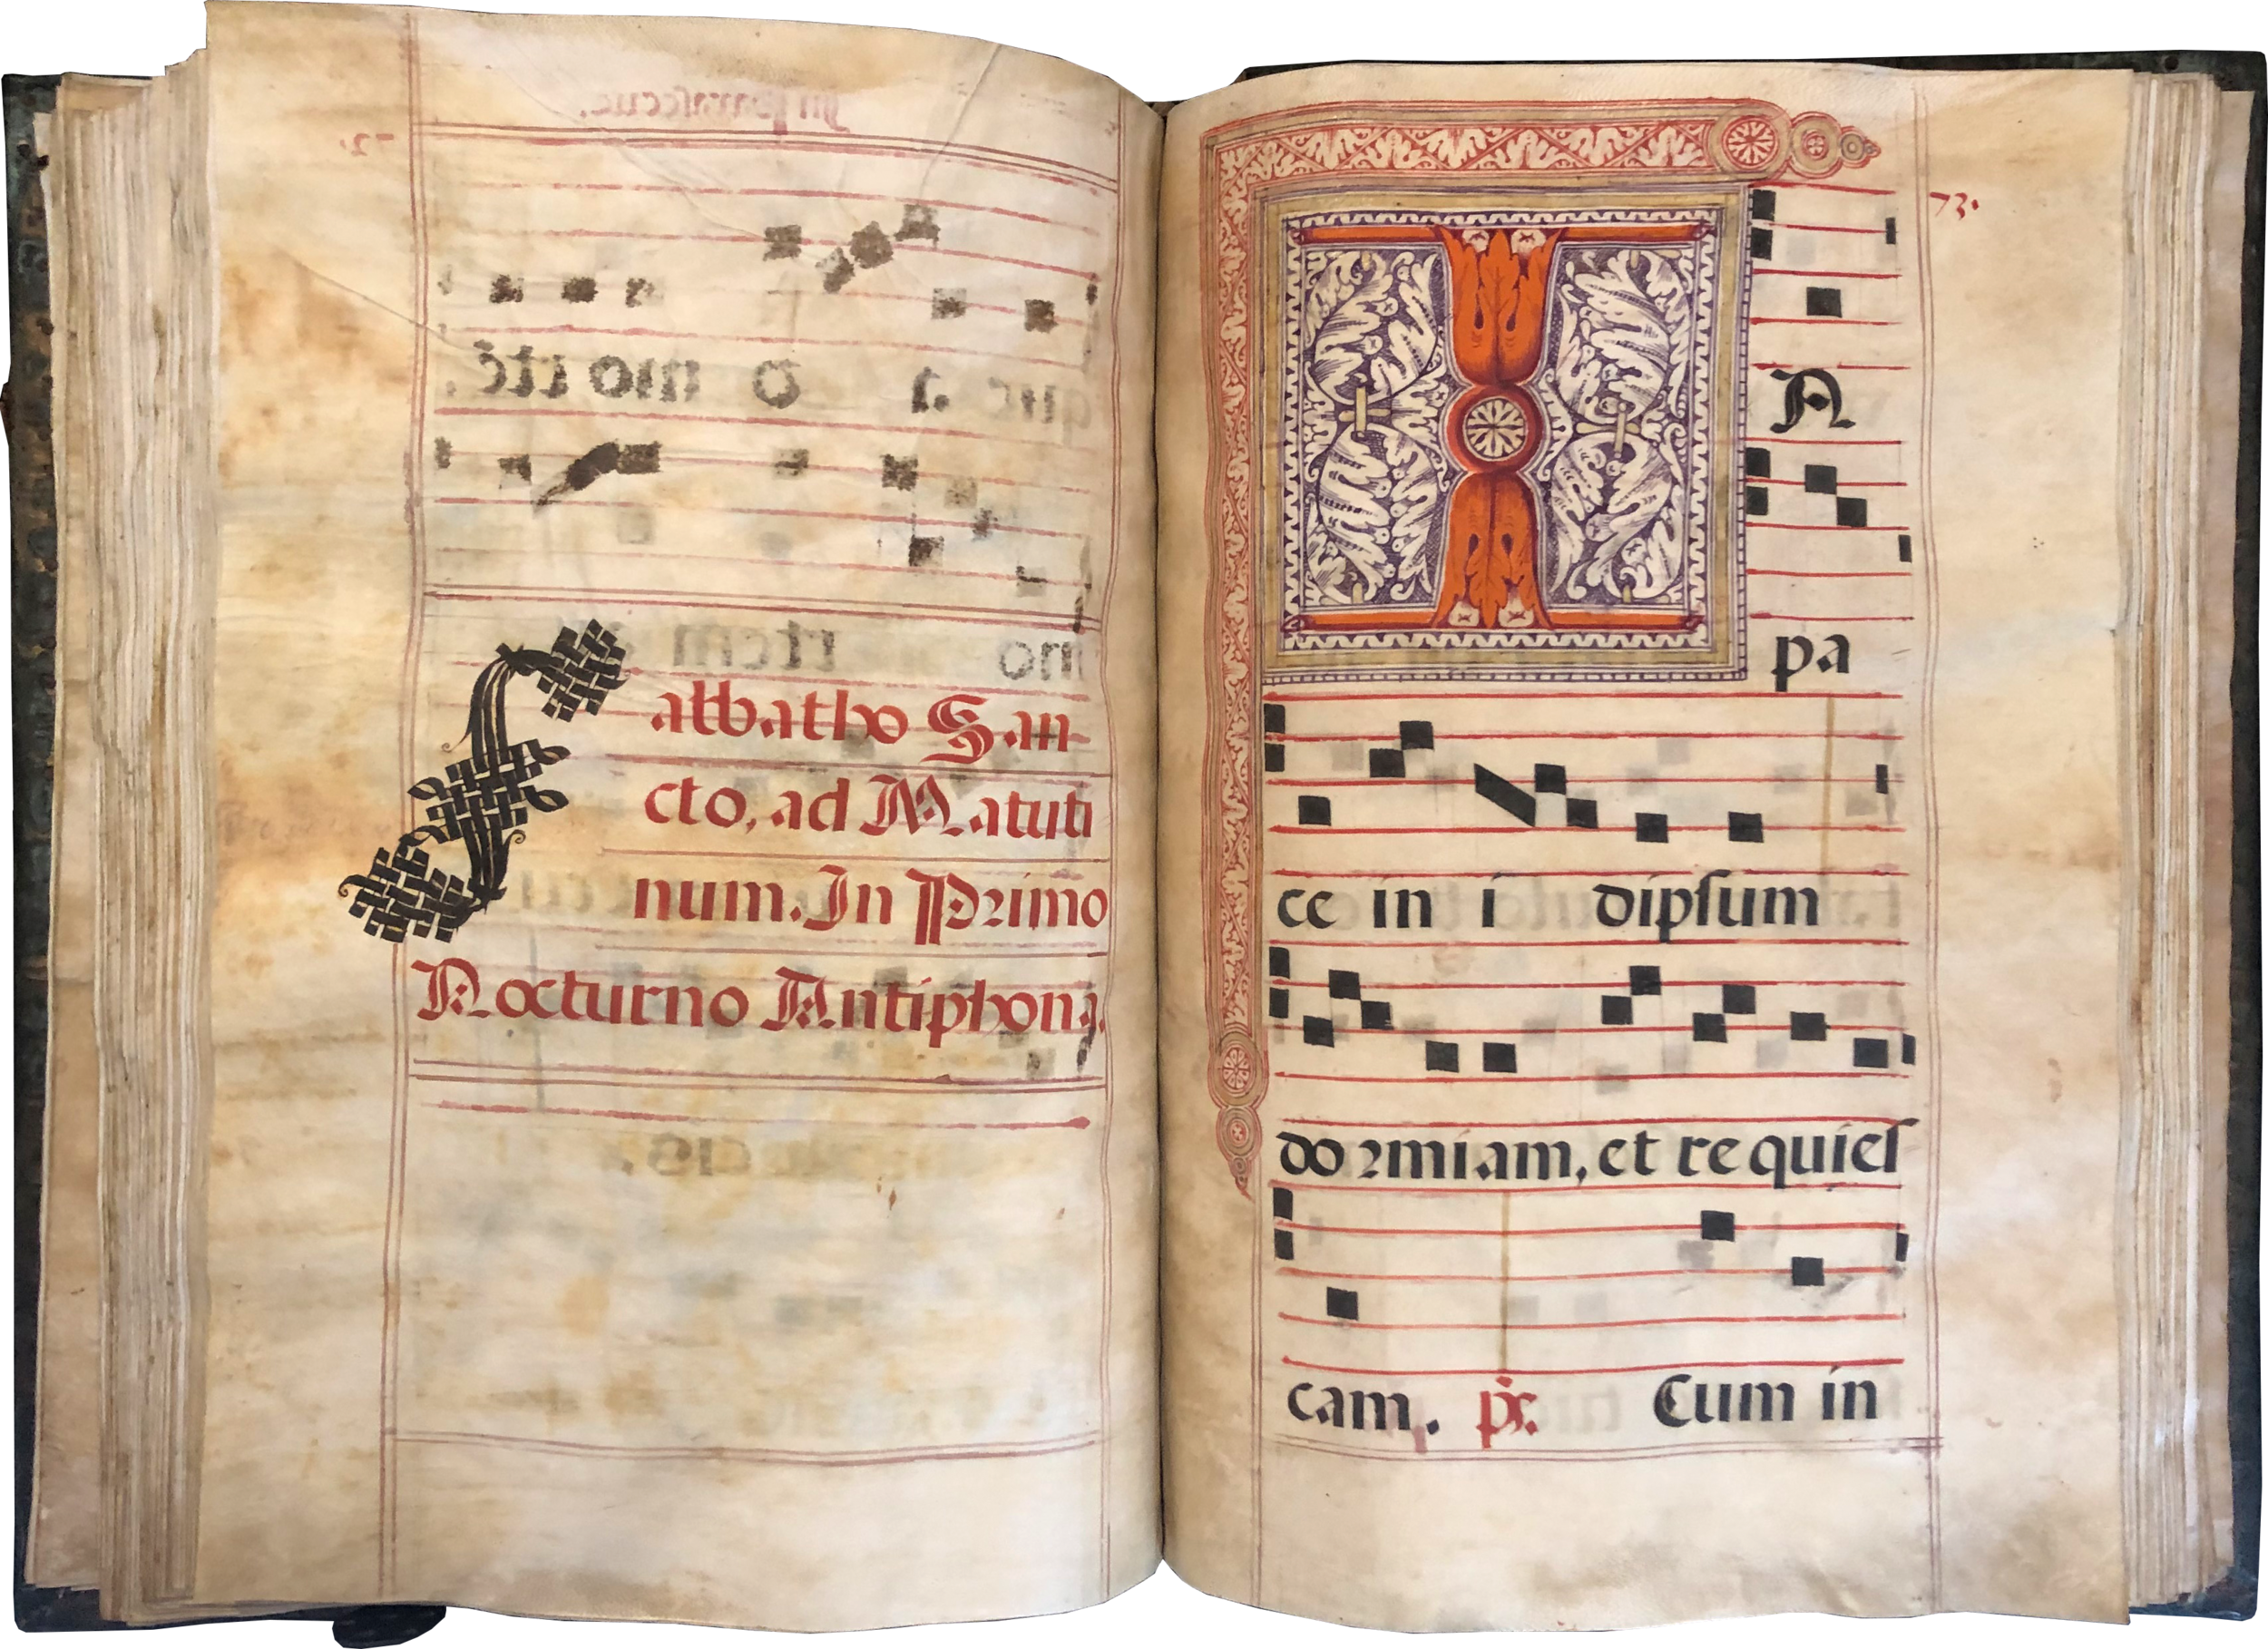 Sabbatho San-
cto, ad Matuti
num. In Primo
Nocturno Antiphona.
73.
IN
pa
ce in i dipſum
dormiam, et re quieſ
cam. ps. Cum in